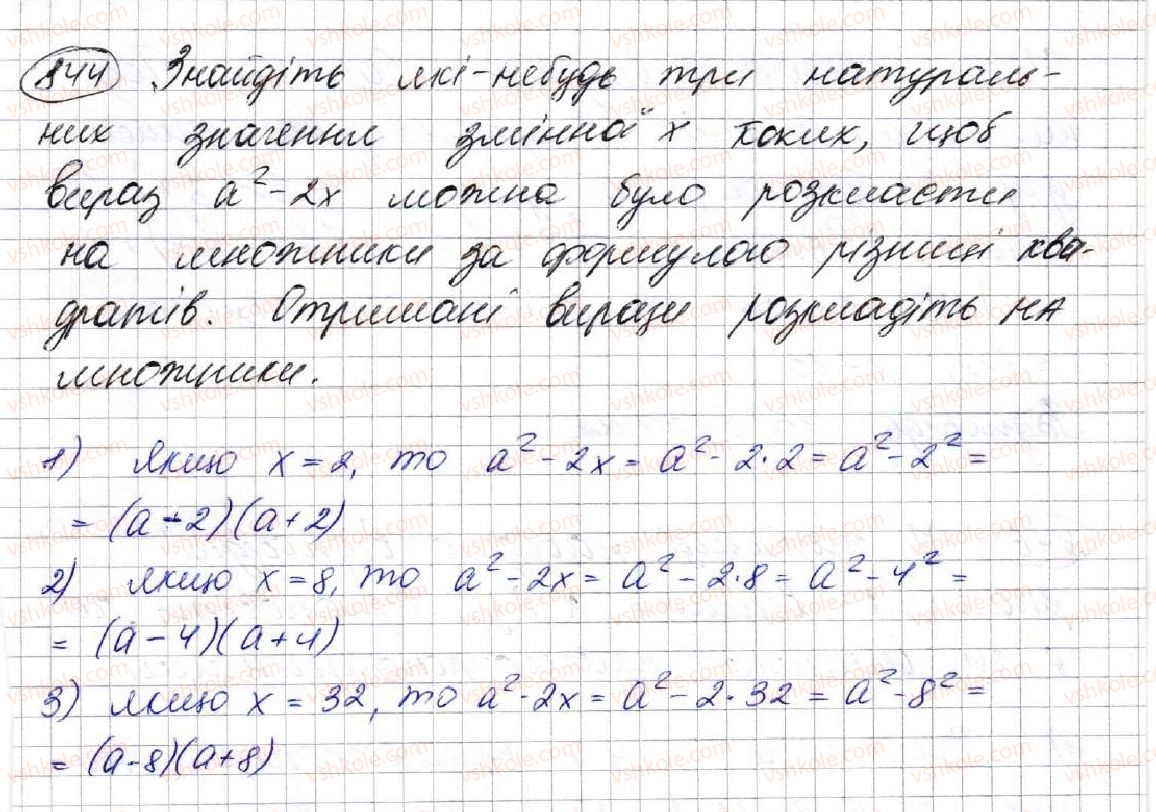 844 Знайдіть які-небудь три натураль-
них значення змінної x таких, щоб
вираз a² - 2x можна було розкласти
на множники за формулою різниці ква-
дратів. Отримані вирази розкладіть на
множники.
1) Якщо x = 2, то a² - 2x = a² - 2·2 = a² - 2² =
= (a - 2)(a + 2)
2) Якщо x = 8, то a² - 2x = a² - 2·8 = a² - 4² =
= (a - 4)(a + 4)
3) Якщо x = 32, то a² - 2x = a² - 2·32 = a² - 8² =
= (a - 8)(a + 8)